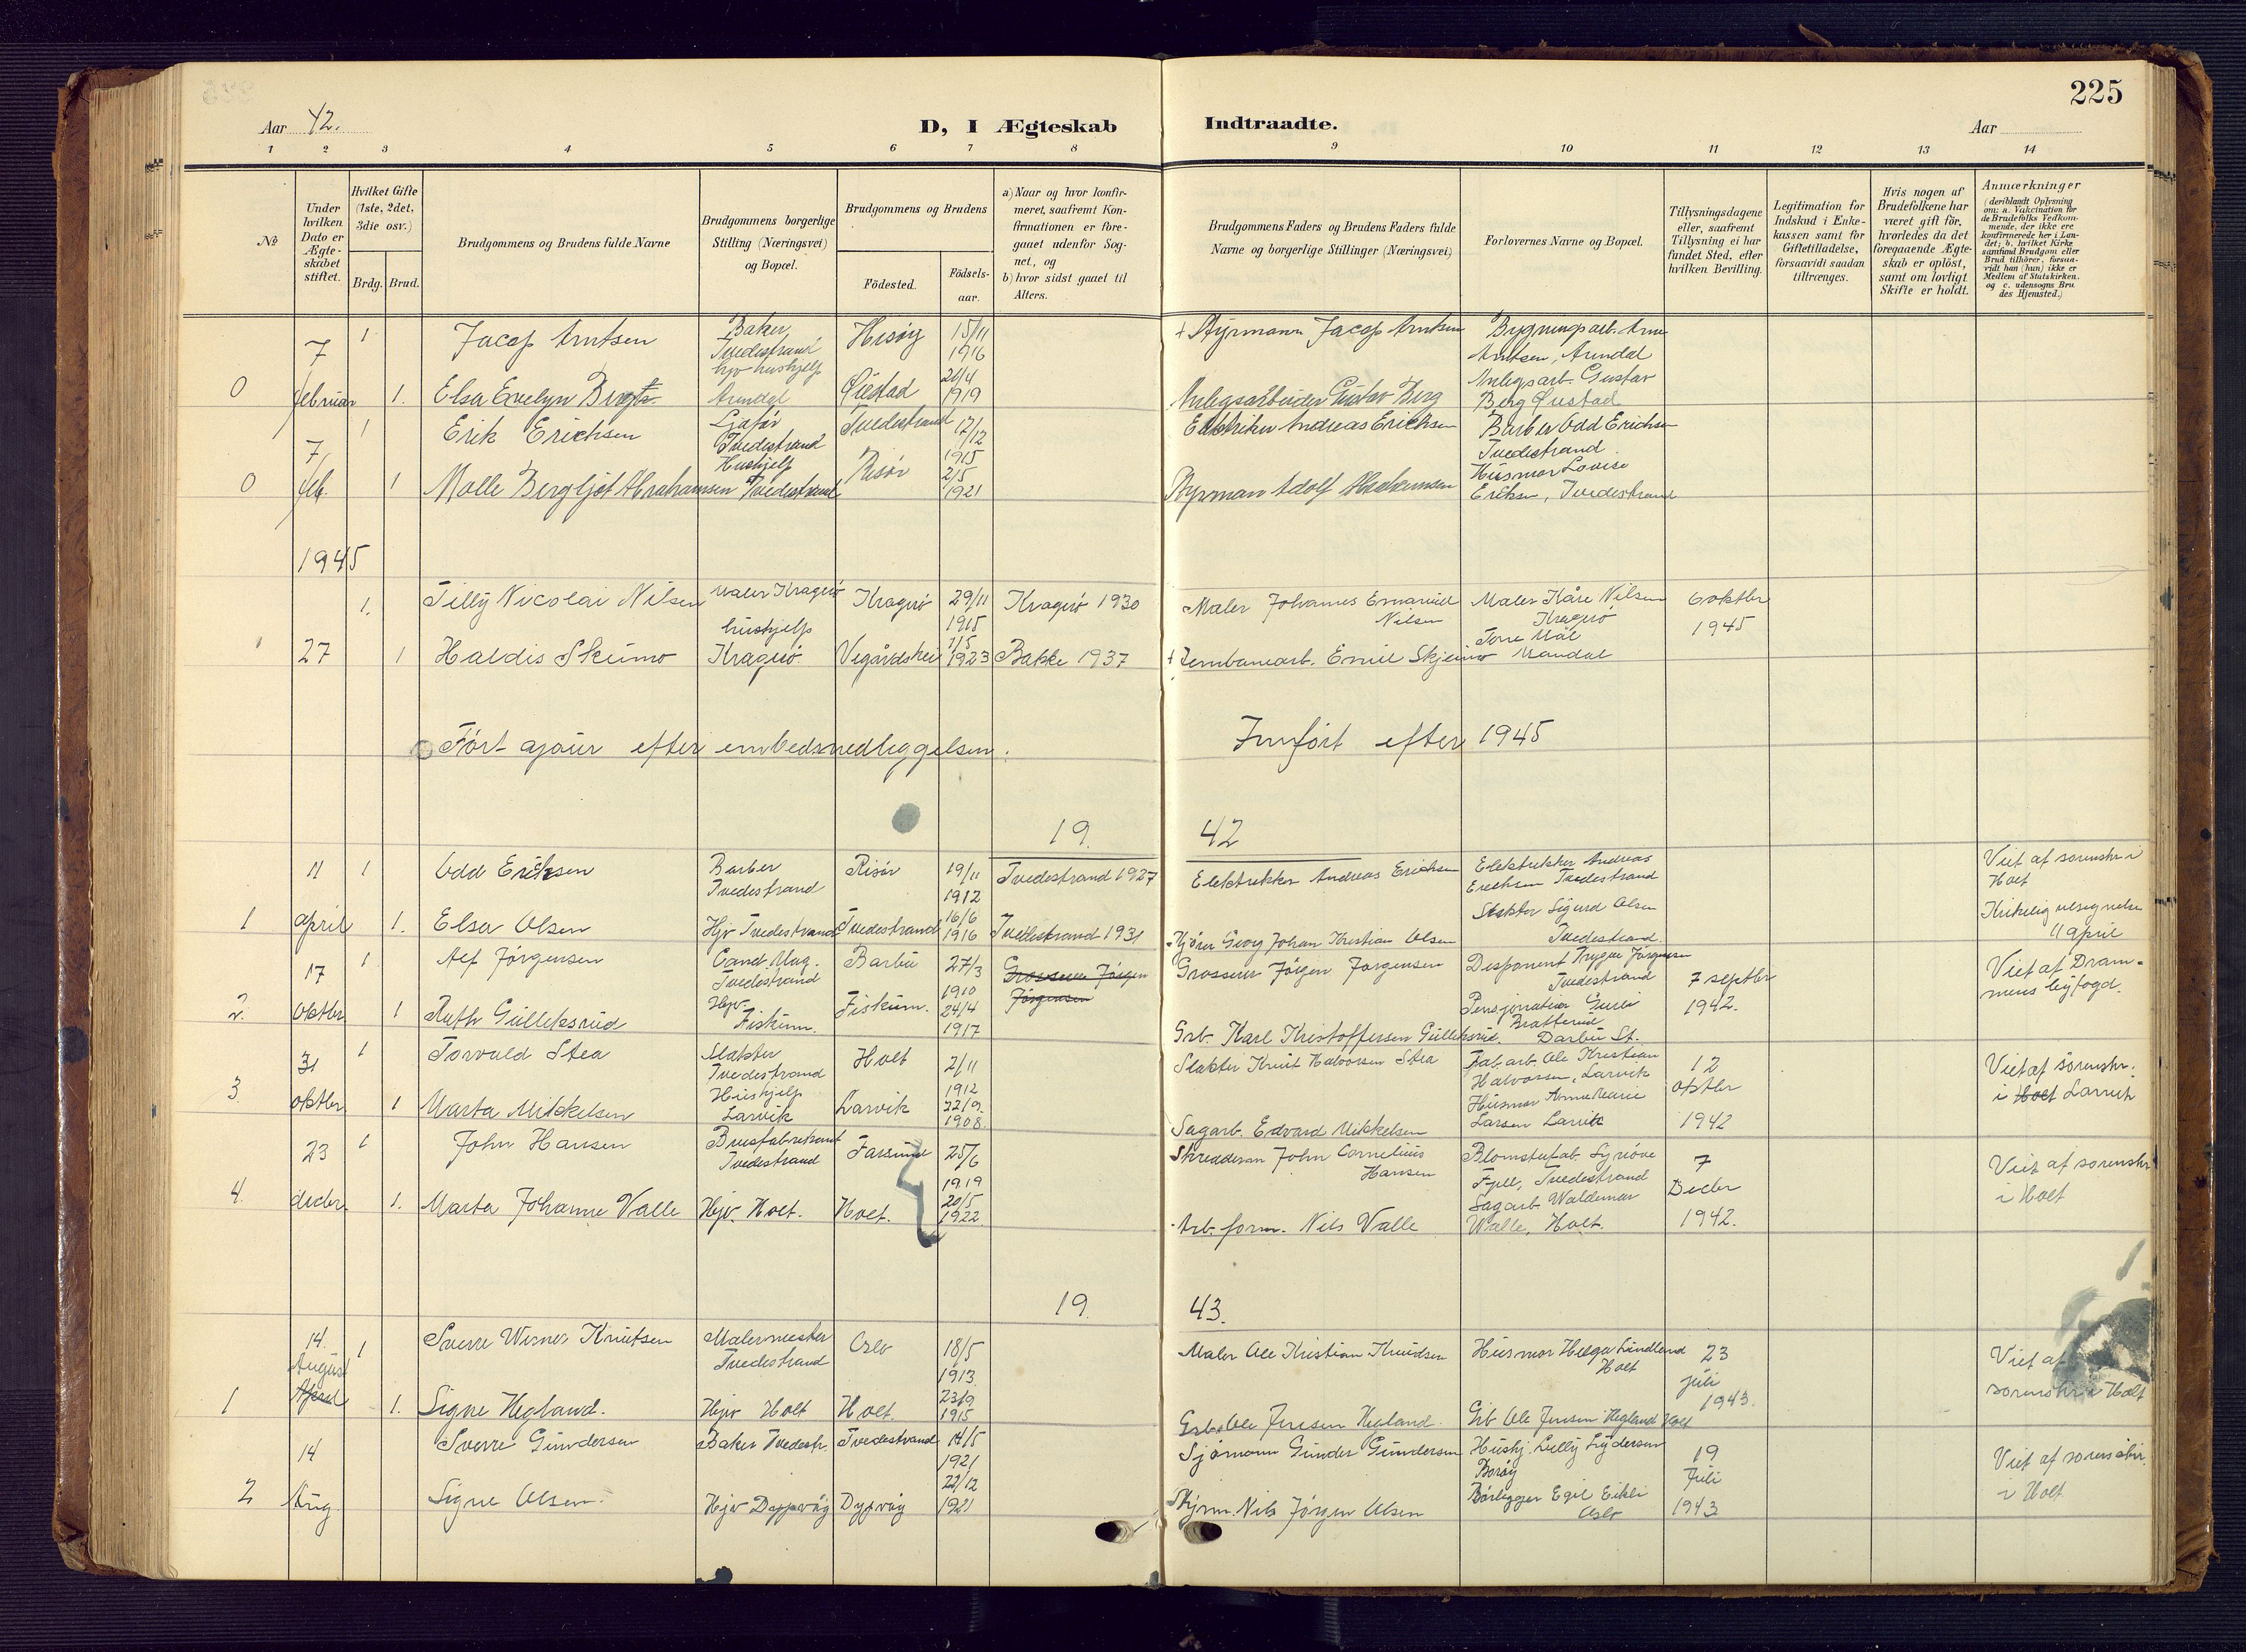 225
Aar 42.
D, I Ægteskab
Indtraadte.
Aar
1 2 3 4 5 6 7 8 9 10 11 12 13 14
№
Under hvilken Dato er Ægteskabet stiftet.
Hvilket Gifte (1ste, 2det, 3die osv.)
Brdg. Brud.
Brudgommens og Brudens fulde Navne
Brudgommens borgerlige Stilling (Næringsvei) og Bopæl.
Brudgommens og Brudens
Födested.
Födsels-aar.
a) Naar og hvor konfirmeret, saafremt Konfirmationen er foregaaet udenfor Sognet, og
b) hvor sidst gaaet til Alters.
Brudgommens Faders og Brudens Faders fulde Navne og borgerlige Stillinger (Næringsvei)
Forlovernes Navne og Bopæl.
Tillysningsdagene eller, saafremt Tillysning ei har fundet Sted, efter hvilken Bevilling.
Legitimation for Indskud i Enkekassen samt for Giftetilladelse, forsaavidt saadan tiltrænges.
Hvis nogen af Brudefolkene har været gift för, hvorledes da det foregaaende Ægteskab er oplöst, samt om lovligt Skifte er holdt.
Anmærkninger
(deriblandt Oplysning om: a. Vakcination for de Brudefolks Vedkommende, der ikke ere konfirmerede her i Landet; b. hvilket Kirkesamfund Brudgom eller Brud tilhörer, forsaavidt han (hun) ikke er Medlem af Statskirken, og c. udensogns Brudes Hjemsted.)
7 1 Jacop Arntsen Baker Tvedestrand Hisöy 15/11 1916 + Styrmann Jacop Arntsen Bygningsarb. Arne Arntsen, Arendal
0 februar 1. Elsa Evelyn Berg hjv hushjelp Arendal Öiestad 20/4 1919 Anlegsarbeider Gustav Berg Anlegsarb. Gustav Berg Öiestad
7 1 Erik Erichsen Sjåfør Tvedestrand Tvedestrand 17/12 1915 Elektriker Andreas Erichsen Barber Odd Erichsen Tvedestrand
0 feb. 1 Malle Bergljot Abrahamsen Hushjelp Tvedestrand Risör 2/5 1921 Styrman Adolf Abrahamsen Husmor Lovise Eriksen, Tvedestrand
1945
1. Tilly Nicolai Nilsen Maler Kragerö Kragerö 29/11 1915 Kragerö 1930 Maler Johannes Emanuel Nilsen Maler Kåre Nilsen Kragerö 6 oktbr 1945
27 1 Haldis Skeimo hushjelp Kragerö. Vegårdshei 7/5 1923 Bakke 1937 + Jernbanearb. Emil Skjeimo Mandal
Fört ajour efter embedsnedleggelsen.
Innfört efter 1945
19. 42
11 1 Odd Eriksen Barber Tvedestrand Risör 19/11 1912 Tvedestrand 1927 Elektrikker Andreas Erichsen Elektrikker Andreas Erichsen Tvedestrand Viet af sorenskr i Holt
1 april 1. Elsa Olsen Hjv Tvedestrand Tvedestrand 16/6 1916 Tvedestrand 1931 Georg Johan Kristian Olsen Slakter Sigurd Olsen Tvedestrand. Kirkelig velsignelse 11 april
17 1 Alf Jörgensen Cand. Mag. Tvedestrand Barbu 27/3 1910 Grosserer Jörgen Jörgensen Grosserer Jörgen Jörgensen Disponent Trygve Jörgensen Tvedestrand 7 septbr 1942. Viet af Drammens byfogd.
2. oktbr 1 Ruth Gulliksrud Hjv. Fiskum. Fiskum. 24/4 1917 Grb. Karl Kristoffersen Gulliksrud. Darbu St.
31 1 Torvald Stea Slakter Tvedestrand Holt 2/11 1912 Slakter Knut Halvorsen Stea Fab.arb. Ole Kristian Halvorsen, Larvik 12 oktbr 1942 Viet af sörenskr. i Holt Larvik
3. oktbr 1 Marta Mikkelsen Hushjelp Larvik Larvik 22/9. 1908. Sagarb. Edvard Mikkelsen Husmor Anne Marie Larsen Larvik
23 1 John Hansen Tvedestrand Farsund 25/6 1919 Skreddersv. John Cornelius Hansen Fjell, Tvedestrand 7 Decbr 1942. Viet af sorenskr i Holt
4. decbr. 1. Marta Johanne Valle Hjv. Holt. Holt. 20/5 1922. Arb. form. Nils Valle Sagarb. Waldemar Walle, Holt.
19. 43.
14. August April 1 Sverre Werner Knutsen Malermester Tvedestrand Oslo 18/5 1913. Maler Ole Kristian Knudsen Husmor Helga Lindland Holt 23 juli 1943. Viet af sorenskr i Holt
1 1. Signe Hegland. Hjv Holt Holt. 23/9 1915 Grb. Ole Jensen Hegland. Grb Ole Jensen Hegland Holt
14 Sverre Gundersen Baker Tvedestr. Tvedestrand 14/5 1921 Sjömann Gunder Gundersen Hushj. Lully Lydersen Boröy 19 Juli 1943 Viet af sorenskr. i Holt
2 Aug. Signe Olsen. Hjv Dypvåg Dypvåg 22/12 1921 Styrm. Nils Jörgen Olsen Egil Eikli Oslo